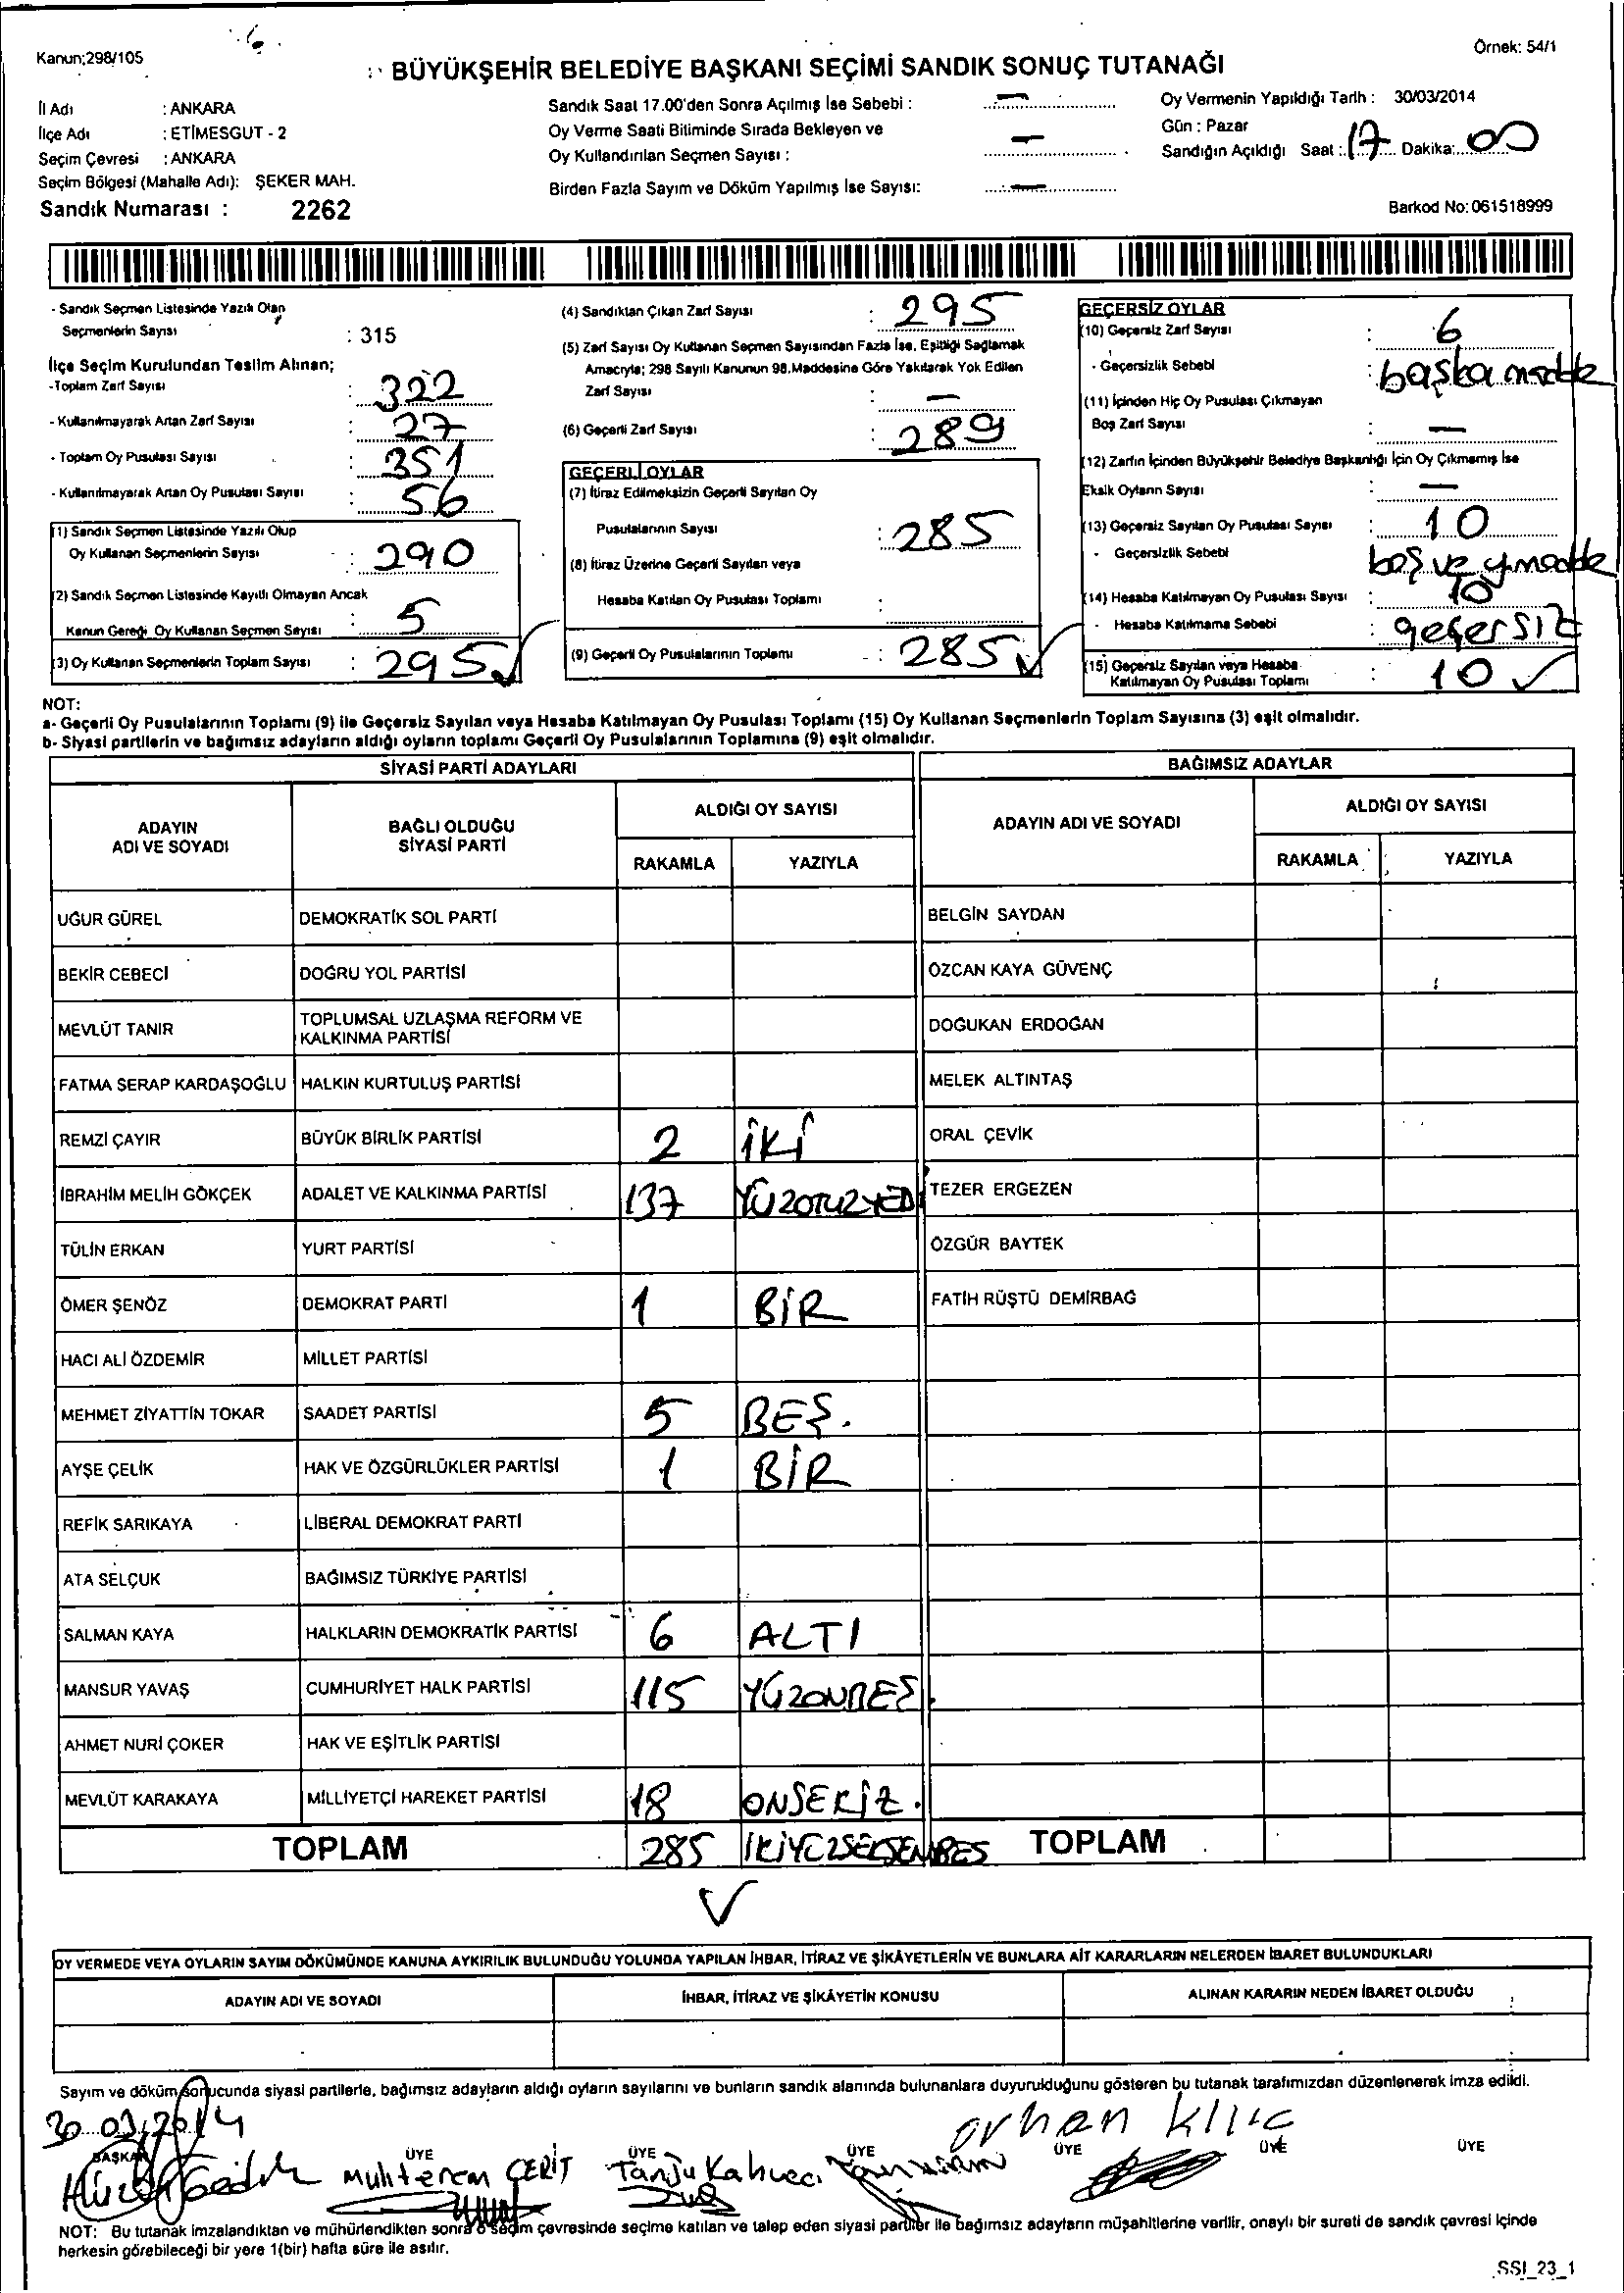 Kanun;298/105
Örnek: 54/1
BÜYÜKŞEHİR BELEDİYE BAŞKANI SEÇİMİ SANDIK SONUÇ TUTANAĞI
İl Adı : ANKARA
İlçe Adı : ETİMESGUT - 2
Seçim Çevresi : ANKARA
Seçim Bölgesi (Mahalle Adı): ŞEKER MAH.
Sandık Numarası : 2262
Sandık Saat 17.00'den Sonra Açılmış İse Sebebi : —
Oy Verme Saati Bitiminde Sırada Bekleyen ve
Oy Kullandırılan Seçmen Sayısı : —
Birden Fazla Sayım ve Döküm Yapılmış İse Sayısı: —
Oy Vermenin Yapıldığı Tarih : 30/03/2014
Gün : Pazar
Sandığın Açıldığı Saat : 17 Dakika: 00
Barkod No: 061518999
- Sandık Seçmen Listesinde Yazılı Olan
Seçmenlerin Sayısı : 315
İlçe Seçim Kurulundan Teslim Alınan;
-Toplam Zarf Sayısı : 322
- Kullanılmayarak Artan Zarf Sayısı : 27
- Toplam Oy Pusulası Sayısı : 351
- Kullanılmayarak Artan Oy Pusulası Sayısı : 56
(1) Sandık Seçmen Listesinde Yazılı Olup
Oy Kullanan Seçmenlerin Sayısı : 290
(2) Sandık Seçmen Listesinde Kayıtlı Olmayan Ancak
Kanun Gereği Oy Kullanan Seçmen Sayısı : 5
(3) Oy Kullanan Seçmenlerin Toplam Sayısı : 295
(4) Sandıktan Çıkan Zarf Sayısı : 295
(5) Zarf Sayısı Oy Kullanan Seçmen Sayısından Fazla İse, Eşitliği Sağlamak
Amacıyla; 298 Sayılı Kanunun 98.Maddesine Göre Yakılarak Yok Edilen
Zarf Sayısı : —
(6) Geçerli Zarf Sayısı : 289
GEÇERLİ OYLAR
(7) İtiraz Edilmeksizin Geçerli Sayılan Oy
Pusulalarının Sayısı : 285
(8) İtiraz Üzerine Geçerli Sayılan veya
Hesaba Katılan Oy Pusulası Toplamı :
(9) Geçerli Oy Pusulalarının Toplamı : 285
GEÇERSİZ OYLAR
(10) Geçersiz Zarf Sayısı : 6
- Geçersizlik Sebebi : başka madde
(11) İçinden Hiç Oy Pusulası Çıkmayan
Boş Zarf Sayısı : —
(12) Zarfın İçinden Büyükşehir Belediye Başkanlığı İçin Oy Çıkmamış İse
Eksik Oyların Sayısı : —
(13) Geçersiz Sayılan Oy Pusulası Sayısı : 10
- Geçersizlik Sebebi boş ve
(14) Hesaba Katılmayan Oy Pusulası Sayısı : 10
- Hesaba Katılmama Sebebi : geçersiz
(15) Geçersiz Sayılan veya Hesaba
Katılmayan Oy Pusulası Toplamı : 10
NOT:
a- Geçerli Oy Pusulalarının Toplamı (9) ile Geçersiz Sayılan veya Hesaba Katılmayan Oy Pusulası Toplamı (15) Oy Kullanan Seçmenlerin Toplam Sayısına (3) eşit olmalıdır.
b- Siyasi partilerin ve bağımsız adayların aldığı oyların toplamı Geçerli Oy Pusulalarının Toplamına (9) eşit olmalıdır.
SİYASİ PARTİ ADAYLARI
BAĞIMSIZ ADAYLAR
ADAYIN
ADI VE SOYADI
BAĞLI OLDUĞU
SİYASİ PARTİ
ALDIĞI OY SAYISI
RAKAMLA YAZIYLA
ADAYIN ADI VE SOYADI
ALDIĞI OY SAYISI
RAKAMLA YAZIYLA
UĞUR GÜREL DEMOKRATİK SOL PARTİ BELGİN SAYDAN
BEKİR CEBECİ DOĞRU YOL PARTİSİ ÖZCAN KAYA GÜVENÇ
MEVLÜT TANIR TOPLUMSAL UZLAŞMA REFORM VE
KALKINMA PARTİSİ DOĞUKAN ERDOĞAN
FATMA SERAP KARDAŞOĞLU HALKIN KURTULUŞ PARTİSİ MELEK ALTINTAŞ
REMZİ ÇAYIR BÜYÜK BİRLİK PARTİSİ 2 İKİ ORAL ÇEVİK
İBRAHİM MELİH GÖKÇEK ADALET VE KALKINMA PARTİSİ 137 YÜZOTUZYEDİ TEZER ERGEZEN
TÜLİN ERKAN YURT PARTİSİ ÖZGÜR BAYTEK
ÖMER ŞENÖZ DEMOKRAT PARTİ 1 BİR FATİH RÜŞTÜ DEMİRBAĞ
HACI ALİ ÖZDEMİR MİLLET PARTİSİ
MEHMET ZİYATTİN TOKAR SAADET PARTİSİ 5 BEŞ.
AYŞE ÇELİK HAK VE ÖZGÜRLÜKLER PARTİSİ 1 BİR
REFİK SARIKAYA LİBERAL DEMOKRAT PARTİ
ATA SELÇUK BAĞIMSIZ TÜRKİYE PARTİSİ
SALMAN KAYA HALKLARIN DEMOKRATİK PARTİSİ 6 ALTI
MANSUR YAVAŞ CUMHURİYET HALK PARTİSİ 115 YÜZONBEŞ
AHMET NURİ ÇOKER HAK VE EŞİTLİK PARTİSİ
MEVLÜT KARAKAYA MİLLİYETÇİ HAREKET PARTİSİ 18 ONSEKİZ.
TOPLAM 285 İKİYÜZSEKSENBEŞ TOPLAM
OY VERMEDE VEYA OYLARIN SAYIM DÖKÜMÜNDE KANUNA AYKIRILIK BULUNDUĞU YOLUNDA YAPILAN İHBAR, İTİRAZ VE ŞİKÂYETLERİN VE BUNLARA AİT KARARLARIN NELERDEN İBARET BULUNDUKLARI
ADAYIN ADI VE SOYADI İHBAR, İTİRAZ VE ŞİKÂYETİN KONUSU ALINAN KARARIN NEDEN İBARET OLDUĞU
Sayım ve döküm sonucunda siyasi partilerle, bağımsız adayların aldığı oyların sayılarını ve bunların sandık alanında bulunanlara duyurulduğunu gösteren bu tutanak tarafımızdan düzenlenerek imza edildi.
30.03.2014
orhan kılıç
BAŞKAN ÜYE ÜYE ÜYE ÜYE ÜYE ÜYE
Muhterem ÇERİT Tanju Kahveci
NOT: Bu tutanak imzalandıktan ve mühürlendikten sonra o seçim çevresinde seçime katılan ve talep eden siyasi partiler ile bağımsız adayların müşahitlerine verilir, onaylı bir sureti de sandık çevresi içinde
herkesin görebileceği bir yere 1(bir) hafta süre ile asılır.
SSI_23_1